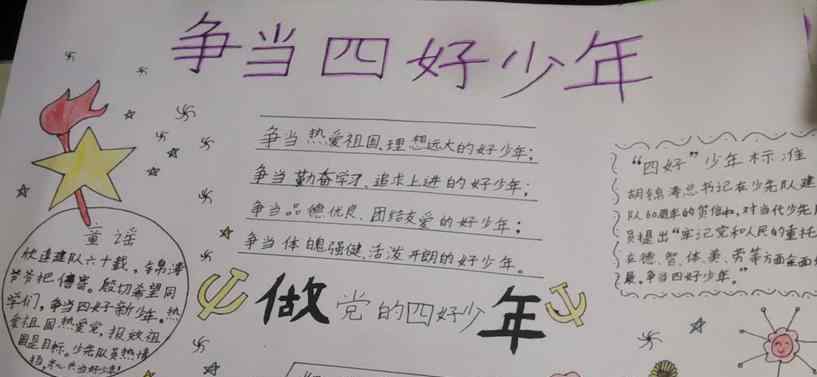 争当四好少年
争当热爱祖国、理想远大的好少年;
争当勤奋学习、追求上进的好少年;
争当品德优良、团结友爱的好少年;
争当体魄强健、活泼开朗的好少年。
做党的四好少年
童谣
欣逢建队六十载,锦涛
爷爷把信寄。殷切希望同
学们,争当四好新少年。热
爱祖国热爱党,报效祖
国是目标。少先队员热情
当好少年!
“四好”少年标准
胡锦涛总书记在少先队建
队60周年的贺信中,对当代少先队
员提出“牢记党和人民的重托
在德、智、体、美、劳等方面全面
展。争当四好少年。”